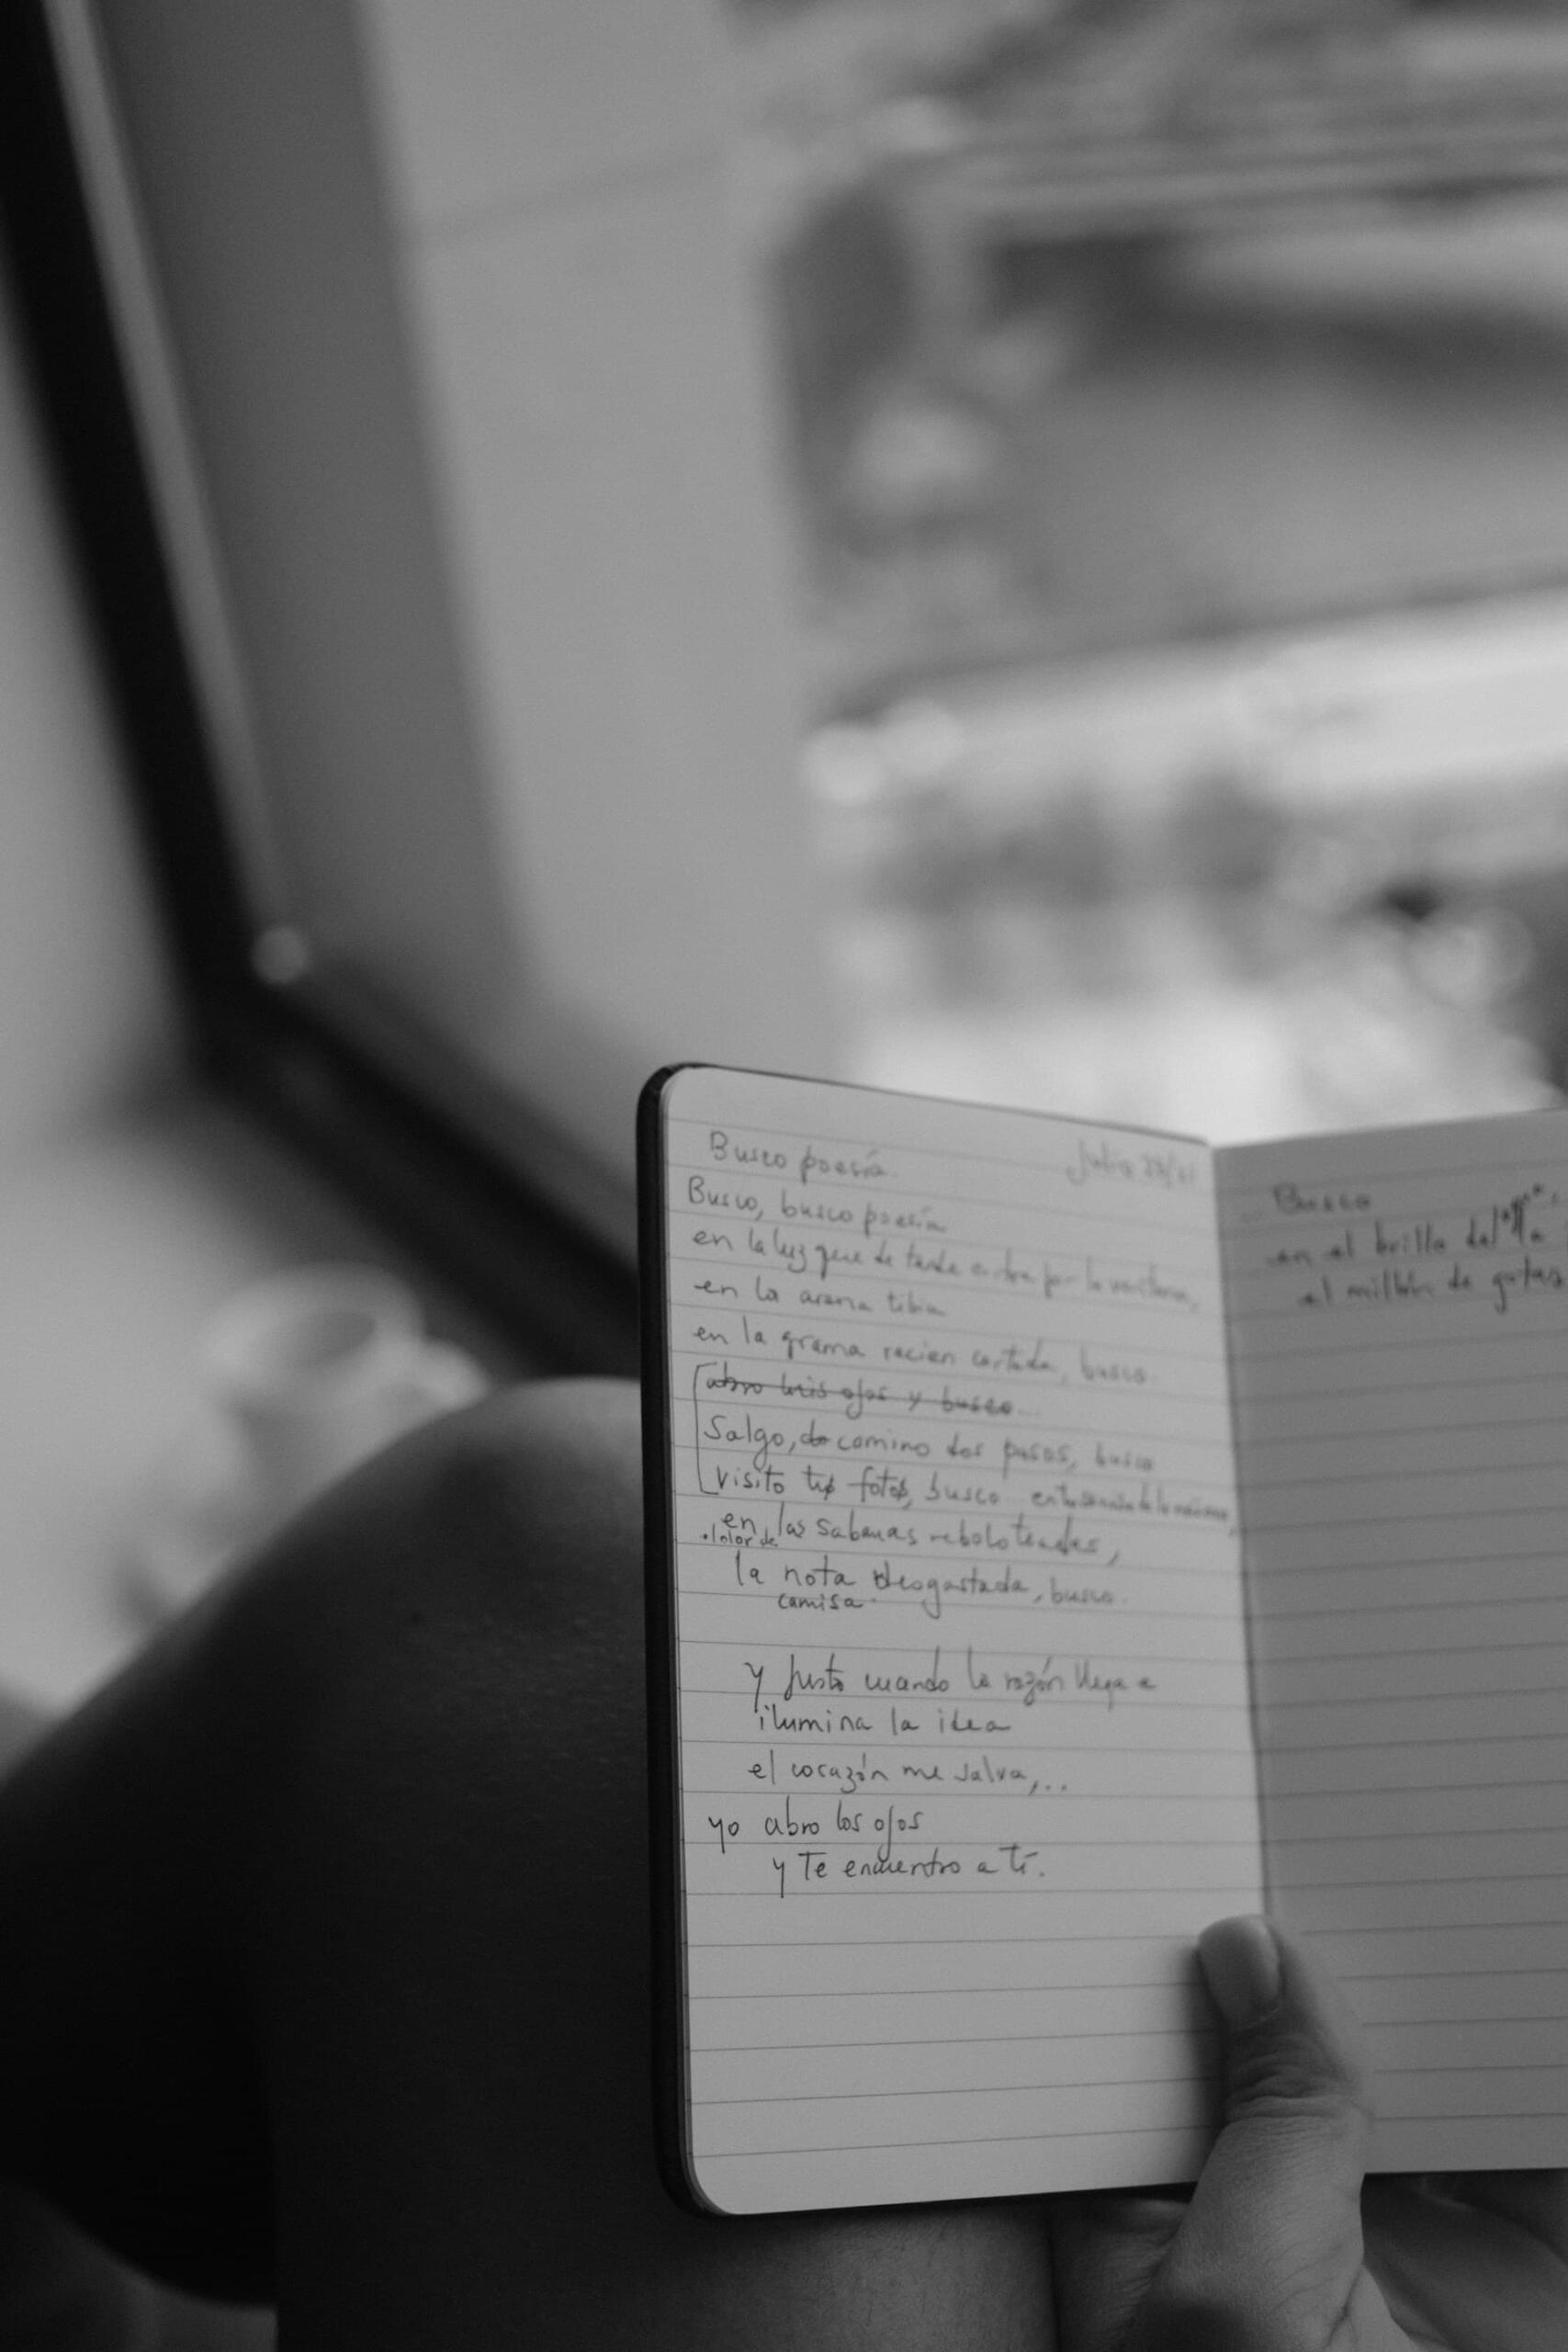 Busco poesía.
Julio
Busco, busco poesía
en la luz que de tarde entra por la ventana,
en la arena tibia
en la grama recien cortada, busco.
abro mis ojos y busco...
Salgo, camino dos pasos, busco
visito tu foto, busco en la
en las sabanas reboloteadas,
olor de
la nota desgastada, busco.
camisa.
y justo cuando la razón llega a
ilumina la idea
el corazón me salva,...
yo abro los ojos
y te encuentro a tí.
Busco
en el brillo del la
el millón de gotas